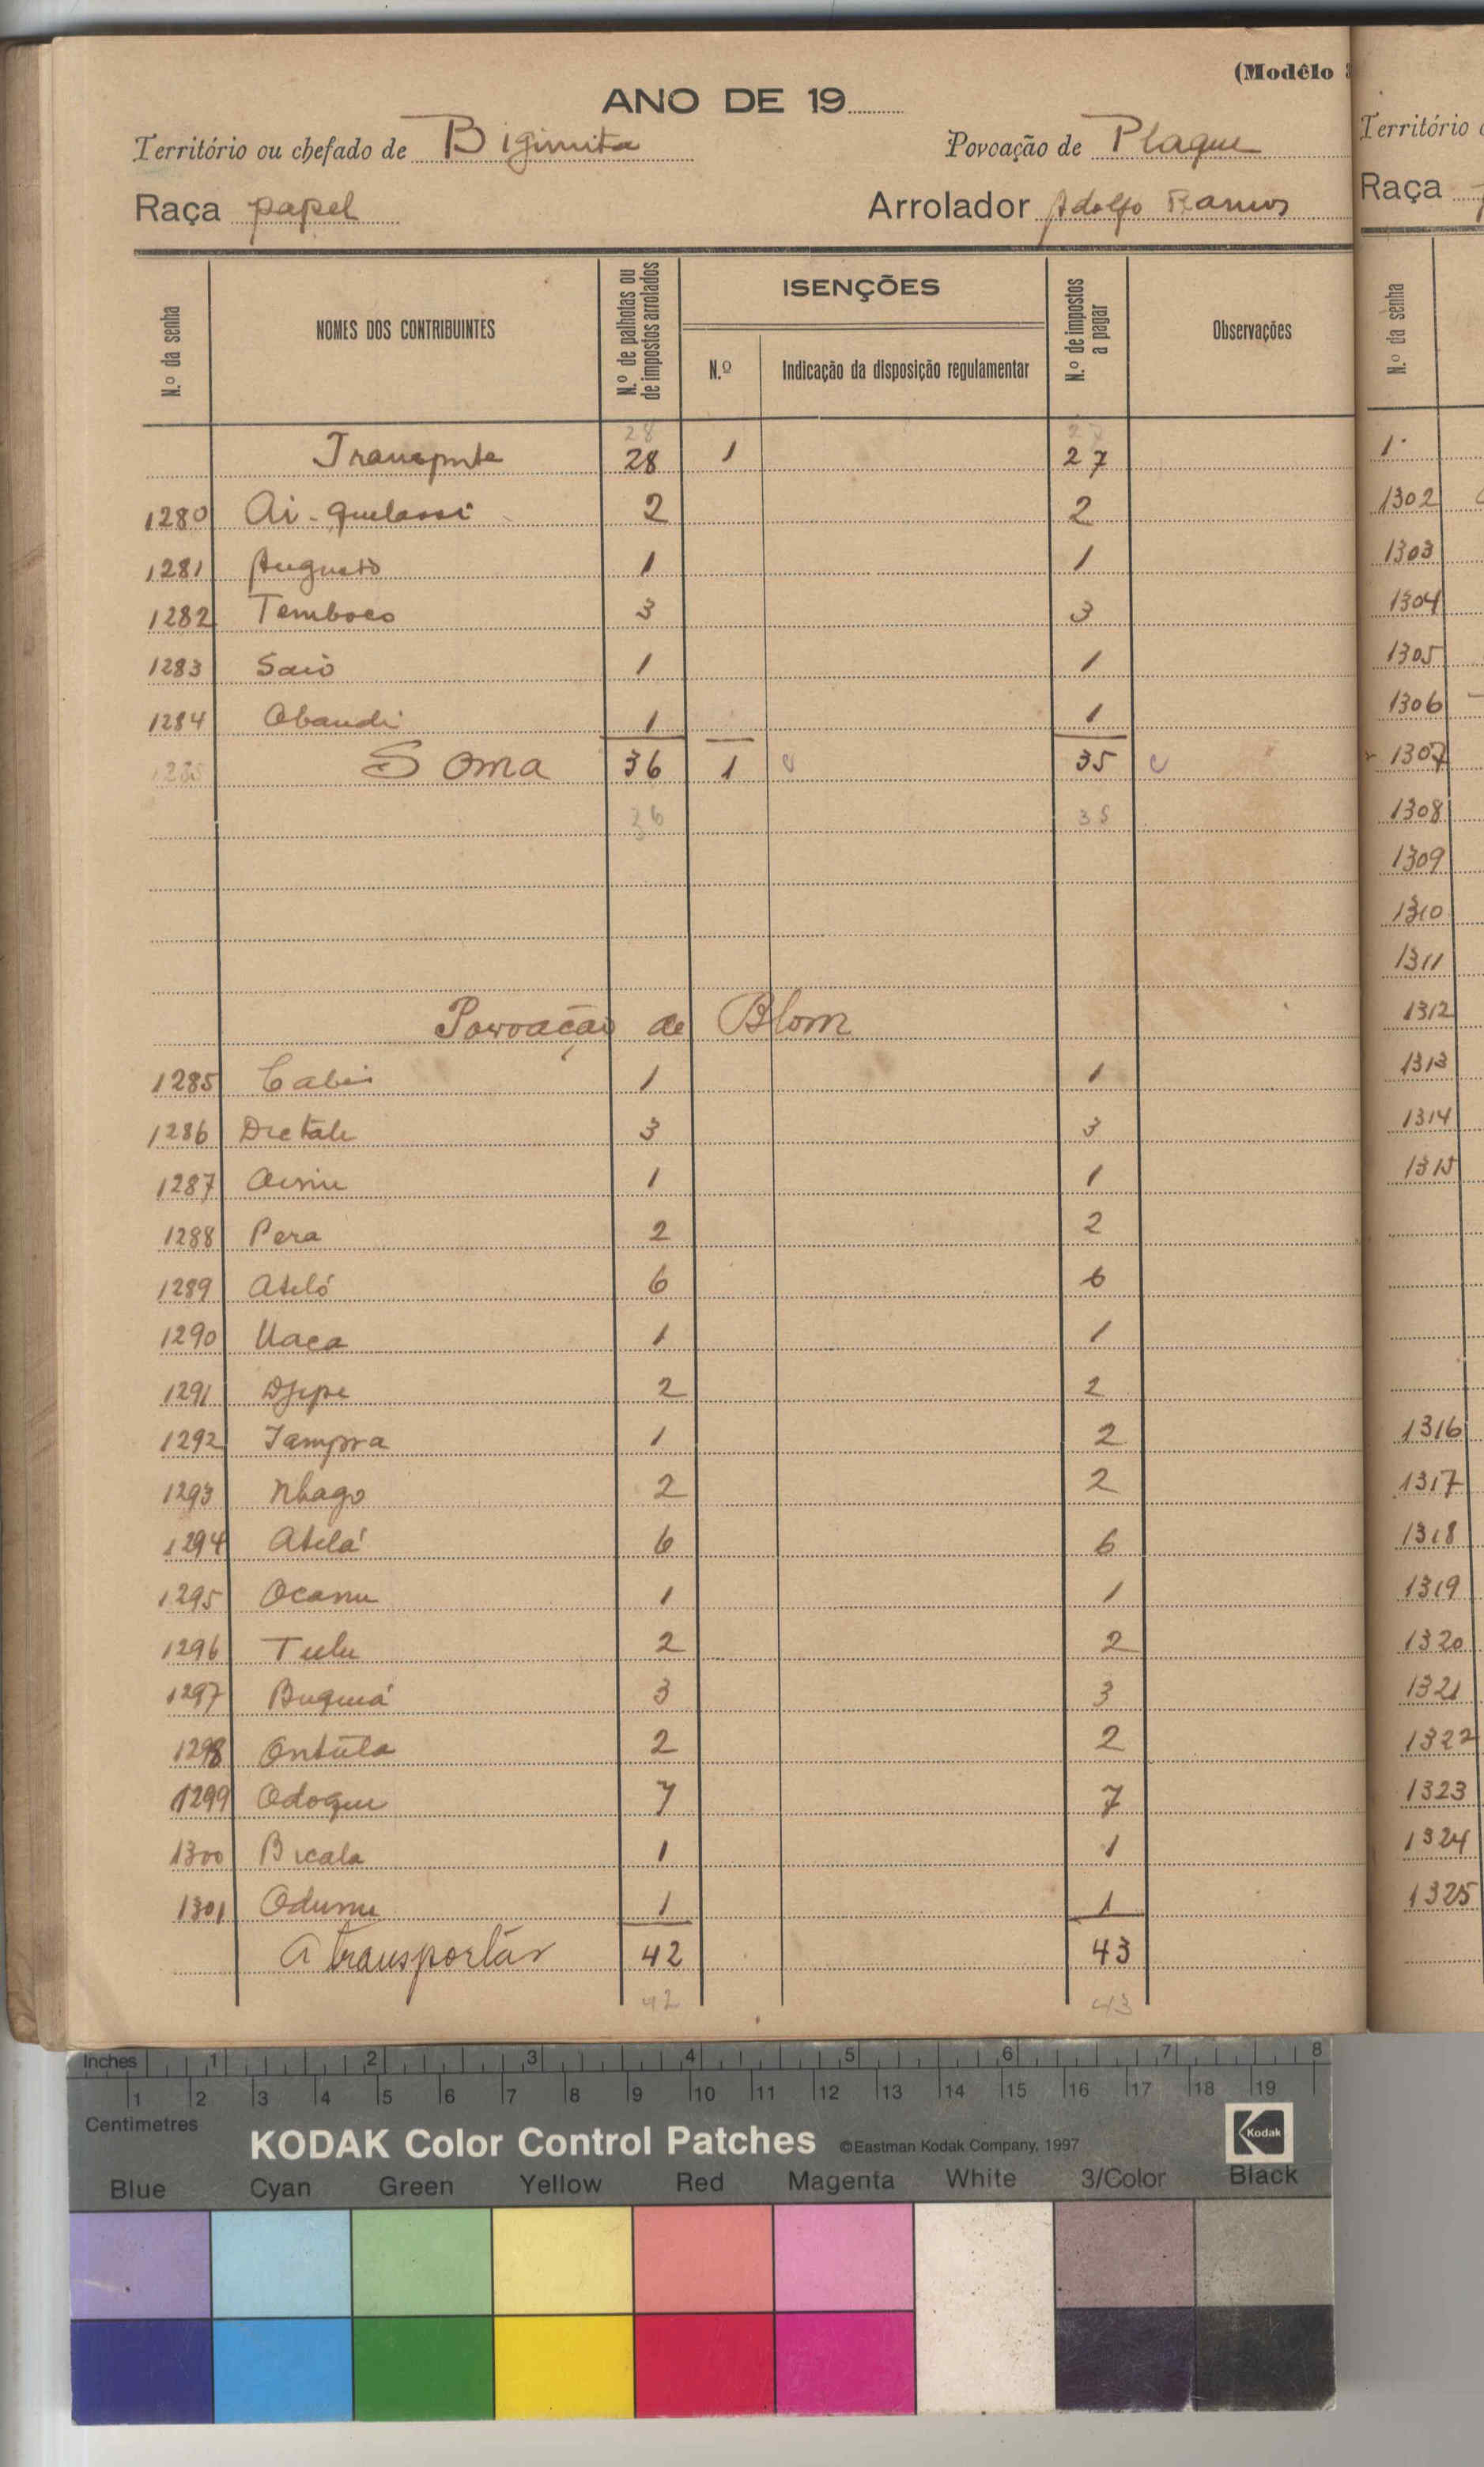 (Modêlo
ANO DE 19
Território ou chefado de Bigimita Povoação de Plaque
Raça papel Arrolador Adolfo Ramos
N.º da senha NOMES DOS CONTRIBUINTES N.º de palhotas ou de impostos arrolados ISENÇÕES N.º Indicação da disposição regulamentar N.º de impostos a pagar Observações
28 27
Transporte 28 1 27
1280 Ai-quelassi 2 2
1281 Augusto 1 1
1282 Temboco 3 3
1283 Saió 1 1
1284 Obandi 1 1
1285 Soma 36 1 35
36 35
Povoação de Blom
1285 Cabi 1 1
1286 Dictale 3 3
1287 1 1
1288 Pera 2 2
1289 Ateló 6 6
1290 Uaca 1 1
1291 Djepe 2 2
1292 Tampra 1 2
1293 Nhago 2 2
1294 Atelá 6 6
1295 Ocanu 1 1
1296 Tulu 2 2
1297 Buquiá 3 3
1298 Ontula 2 2
1299 Odoque 7 7
1300 Bicala 1 1
1301 Odumu 1 1
A transportar 42 43
42 43
Território
Raça
N.º da senha
1
1302
1303
1304
1305
1306
1307
1308
1309
1310
1311
1312
1313
1314
1315
1316
1317
1318
1319
1320
1321
1322
1323
1324
1325
Inches 1 2 3 4 5 6 7 8
1 2 3 4 5 6 7 8 9 10 11 12 13 14 15 16 17 18 19
Centimetres
KODAK Color Control Patches ©Eastman Kodak Company, 1997 Kodak
Blue Cyan Green Yellow Red Magenta White 3/Color Black